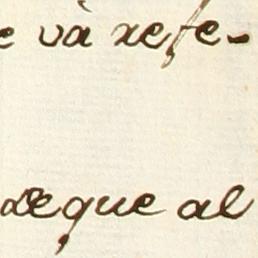 e và refe-
de que al